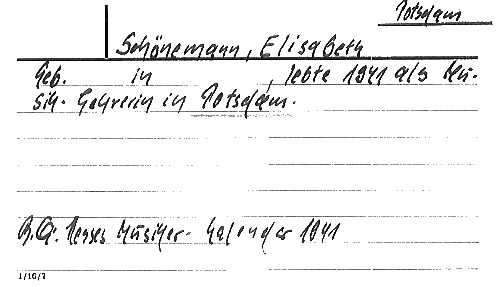 Potsdam
Schönemann, Elisabeth
Geb. in , lebte 1941 als Mu-
sik- Lehrerin in Potsdam.
B.Q. Hesses Musiker- Kalender 1941
1/10/7